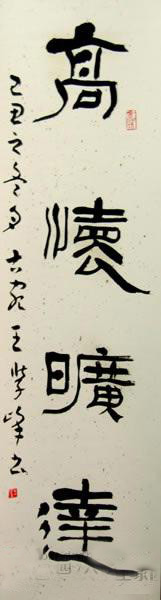 高懷曠達
己丑之冬月古充王学峰书